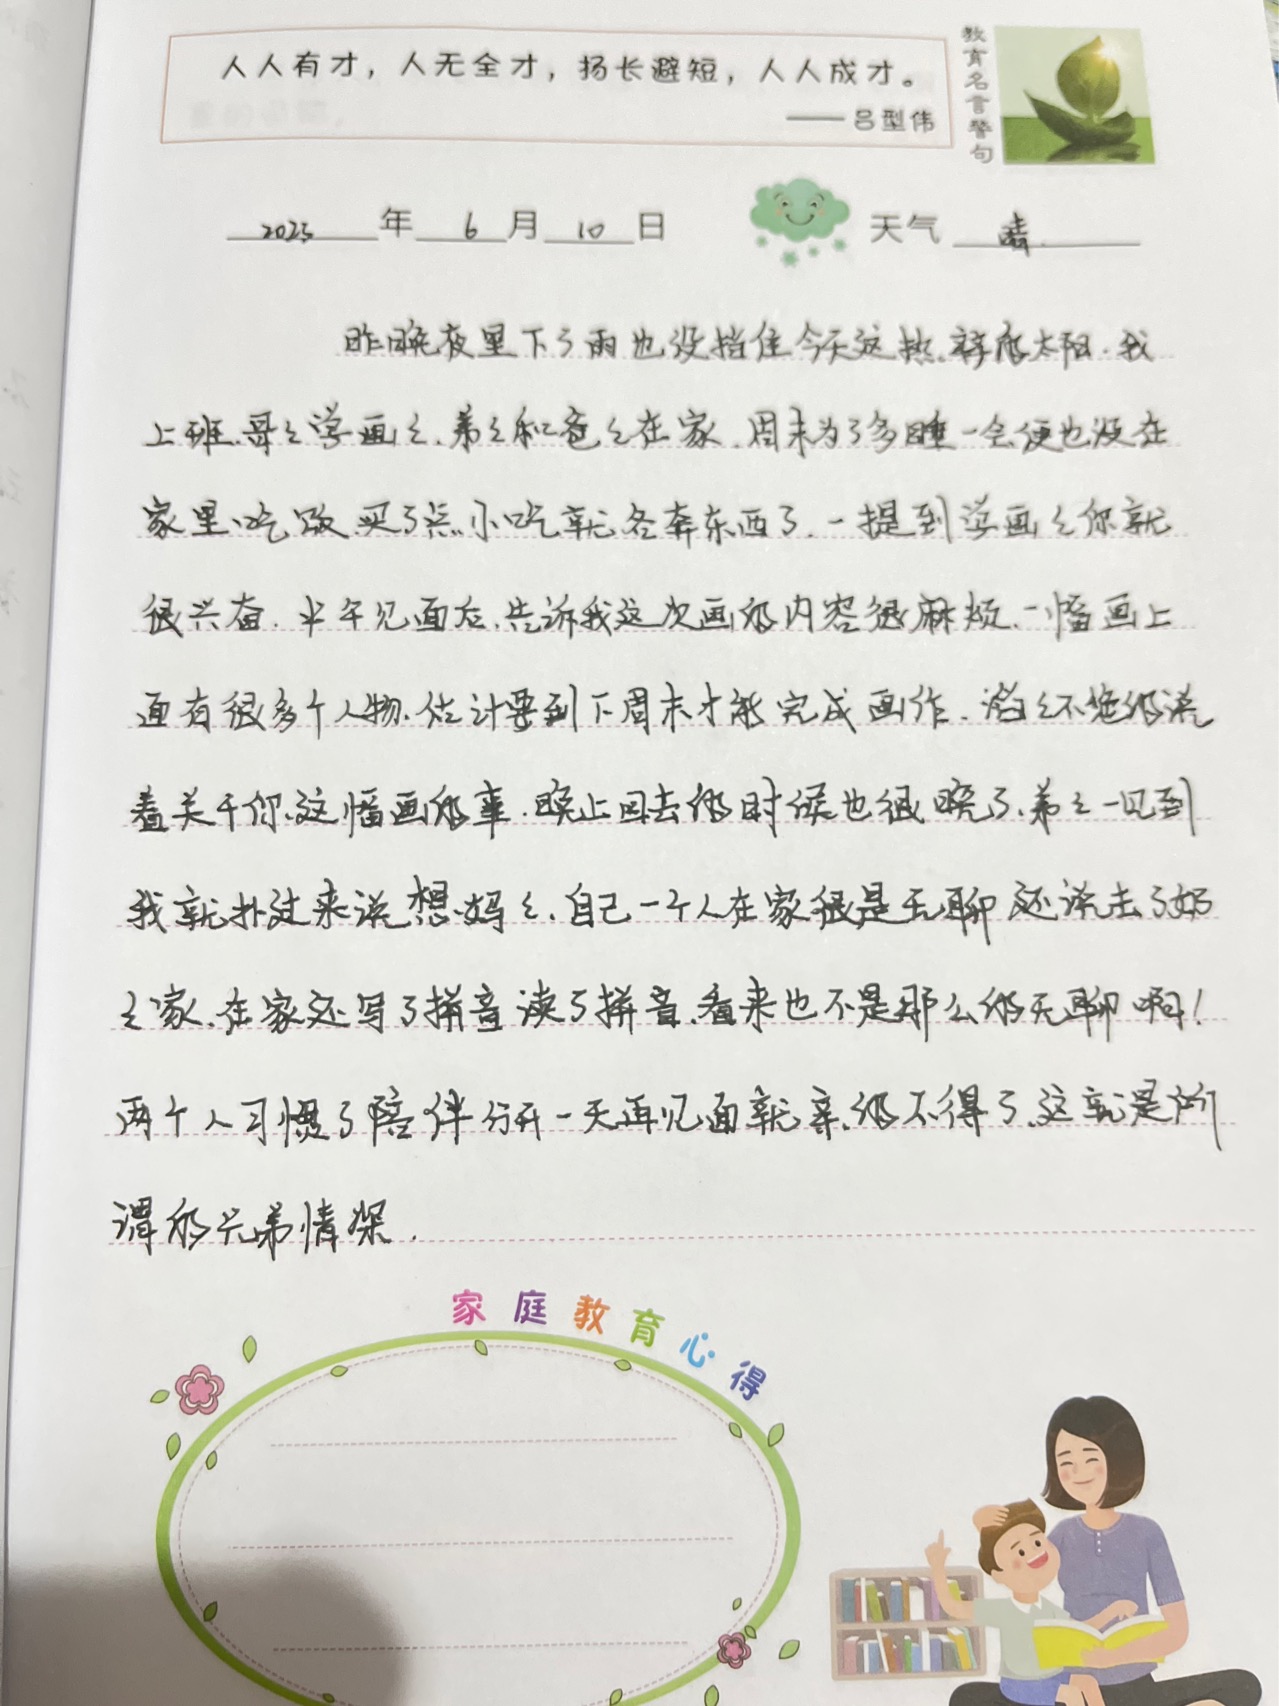 人人有才，人无全才，扬长避短，人人成才。
——吕型伟
教育名言警句
2023年6月10日 天气 晴.
昨晚夜里下了雨也没挡住今天这热辣的太阳.我
上班.哥々学画々.弟々和爸々在家.周末为了多睡一会便也没在
家里吃饭.买了点小吃就各奔东西了.一提到学画々你就
很兴奋.中午见面后.告诉我这次画的内容很麻烦.一幅画上
面有很多个人物.估计要到下周末才能完成画作.滔々不绝的说
着关于你这幅画的事.晚上回去的时候也很晚了.弟々一见到
我就扑过来说想妈々.自己一个人在家很是无聊还说去了奶
々家.在家还写了拼音读了拼音.看来也不是那么的无聊啊!
两个人习惯了陪伴分开一天再见面就亲的不得了.这就是所
谓的兄弟情深.
家庭教育心得